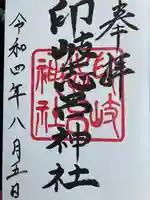 奉拝
印岐志呂神社
令和四年八月五日